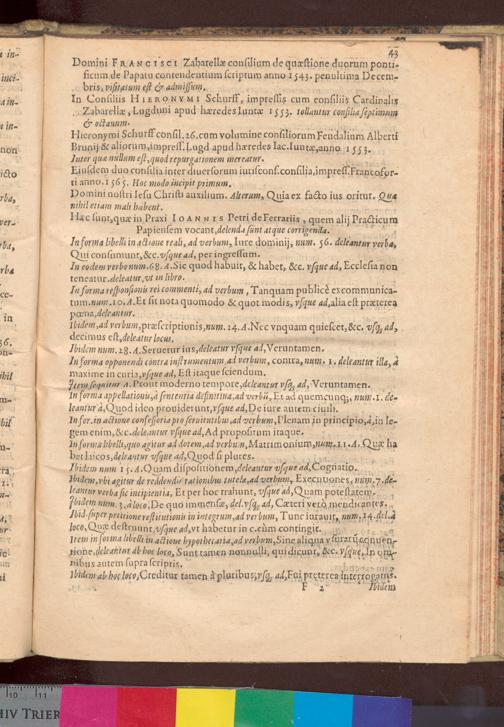 43
Domini FRANCISCI Zabarellæ consilium de quæstione duorum ponti-
ficum de Papatu contendentium scriptum anno 1543. penultima Decem-
bris, visitatum est & admissum.
In Consiliis HIERONYMI Schurff, impressis cum consiliis Cardinalis
Zabarellæ, Lugduni apud hæredes Iuntæ 1553. tollantur consilia septimum
& octauum.
Hieronymi Schurff consil. 26. cum volumine consiliorum Feudalium Alberti
Bruni & aliorum, impress. Lugd apud hæredes Iac. Iuntæ, anno 1553.
Inter quæ nullum est, quod repurgationem mereatur.
Eiusdem duo consilia inter diuersorum iurisconf. consilia, impress. Francofor-
ti anno. 1565. Hoc modo incipit primum.
Domini nostri Iesu Christi auxilium. Alterum, Quia ex facto ius oritur. Quæ
nihil etiam mali habent.
Hæc sunt, quæ in Praxi IOANNIS Petri de Ferrariis, quem alij Practicum
Papiensem vocant, delenda sunt atque corrigenda.
In forma libelli in actione reali, ad verbum, Iure dominij, num. 56. deleantur verba,
Qui consumunt, &c. vsque ad, per ingressum.
In eodem verbo num. 68. A. Sic quod habuit, & habet, &c. vsque ad, Ecclesia non
teneatur. deleatur, vt in libro.
In forma responsionis rei conuenti, ad verbum, Tanquam publicè excommunica-
tum. num. 10. A. Et sit nota quomodo & quot modis, vsque ad, alia est præterea
pœna, deleantur.
Ibidem, ad verbum, præscriptionis, num. 14. A. Nec vnquam quiescet, &c. vsq, ad,
decimus est, deleatur locus.
Ibidem num. 28. A. Seruetur ius, deleatur vsque ad, Veruntamen.
In forma opponendi contra instrumentum, ad verbum, contra, num. 1. deleantur illa, à
maxime in curia, vsque ad, Est itaque sciendum.
Item sequitur A. Prout moderno tempore, deleantur vsq, ad, Veruntamen.
In forma appellationis, à sententia definitiua, ad verbū, Et ad quemcunq;, num. 1. de-
leantur à, Quod ideo prouidetur, vsque ad, De iure autem ciuili.
In for. in actione confessoria pro seruitutibus, ad verbum, Plenam in principio, à, in le-
gem enim, &c. deleantur vsque ad, Ad propositum itaque.
In forma libelli, quo agitur ad dotem, ad verbum, Matrimonium, num. 11. A. Quæ ha
bet laicos, deleantur vsque ad, Quod si plures.
Ibidem num 15. A. Quam dispositionem, deleantur vsque ad, Cognatio.
Ibidem, vbi agitur de reddendis rationibus tutelæ, ad verbum, Executiones, num. 7. de-
leantur verba sic incipientia, Et per hoc trahunt, vsque ad, Quam potestatem.
Ibidem num. 3. à loco, De quo immensæ, del. vsq, ad, Cæteri verò mendicantes.
Ibid. super petitione restitutionis in integrum, ad verbum, Tunc iurauit, num. 14. del. à
loco, Quæ destruunt, vsque ad, vt habetur in c. cùm contingit.
Item in forma libelli in actione hypothecaria, ad verbum, Sine aliqua vsurarū exquen-
tione, deleantur ab hoc loco, Sunt tamen nonnulli, qui dicunt, &c. vsque, In om-
nibus autem suprascriptis.
Ibidem ab hoc loco, Creditur tamen à pluribus, vsq, ad, Fui præterea interrogatus.
F 2 Ibidem